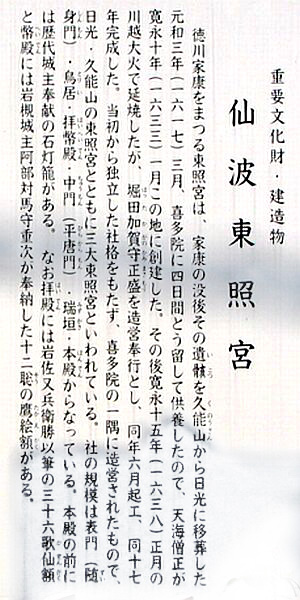 重要文化財・建造物
仙波東照宮
徳川家康をまつる東照宮は、家康の没後その遺骸を久能山から日光に移葬した
元和三年（一六一七）三月、喜多院に四日間とう留して供養したので、天海僧正が
寛永十年（一六三三）一月この地に創建した。その後寛永十五年（一六三八）正月の
川越大火で延焼したが、堀田加賀守正盛を造営奉行とし、同年六月起工、同十七
年完成した。当初から独立した社格をもたず、喜多院の一隅に造営されたもので、
日光・久能山の東照宮とともに三大東照宮といわれている。社の規模は表門（随
身門）・鳥居・拝幣殿・中門（平唐門）・瑞垣・本殿からなっている。本殿の前に
は歴代城主奉献の石灯籠がある。なお拝殿には岩佐又兵衛勝以筆の三十六歌仙額
と幣殿には岩槻城主阿部対馬守重次が奉納した十二聡の鷹絵額がある。